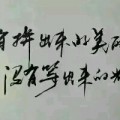 有拼出来的美丽
没有等出来的